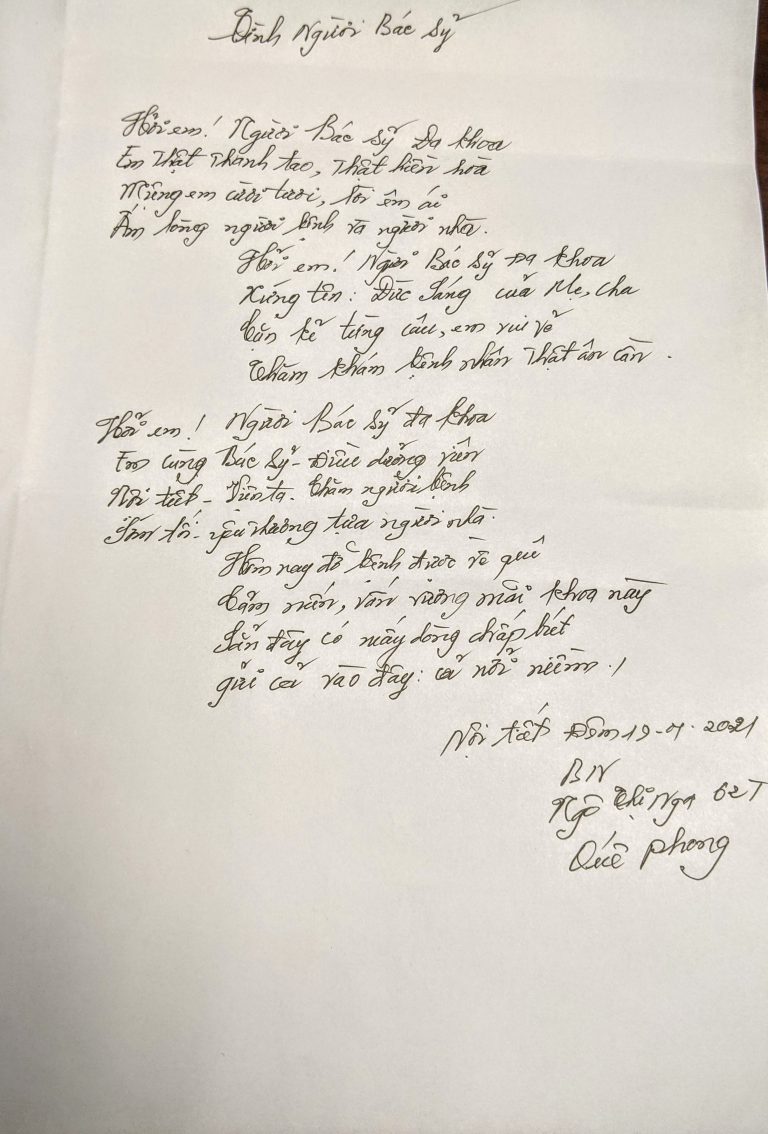 Tình Người Bác Sỹ
Hỡi em! Người Bác Sỹ Đa khoa
Em Thật Thanh tao, Thật hiền hoà
Miệng em cười tươi, lời êm ái
Ấm lòng người bệnh và người nhà.
Hỡi em! Người Bác Sỹ Đa khoa
Xứng tên: Đức Sáng của Mẹ, cha
Cặn kẽ từng câu, em vui vẻ
Thăm khám bệnh nhân Thật ân cần.
Hỡi em! Người Bác Sỹ đa khoa
Em cùng Bác Sỹ - Điều dưỡng viên
Nội tiết - Viện ta. Chăm người bệnh
Sớm tối - yêu thương tựa người nhà.
Hôm nay đỡ bệnh được về quê
Cảm mến, vấn vương mãi khoa này
Sẵn đây có mấy dòng chắp bút
gửi cả vào đây: cả nỗi niềm ./
Nội tiết Đêm 2021
BN
Ngô Thị Nga 62T
Quế Phong